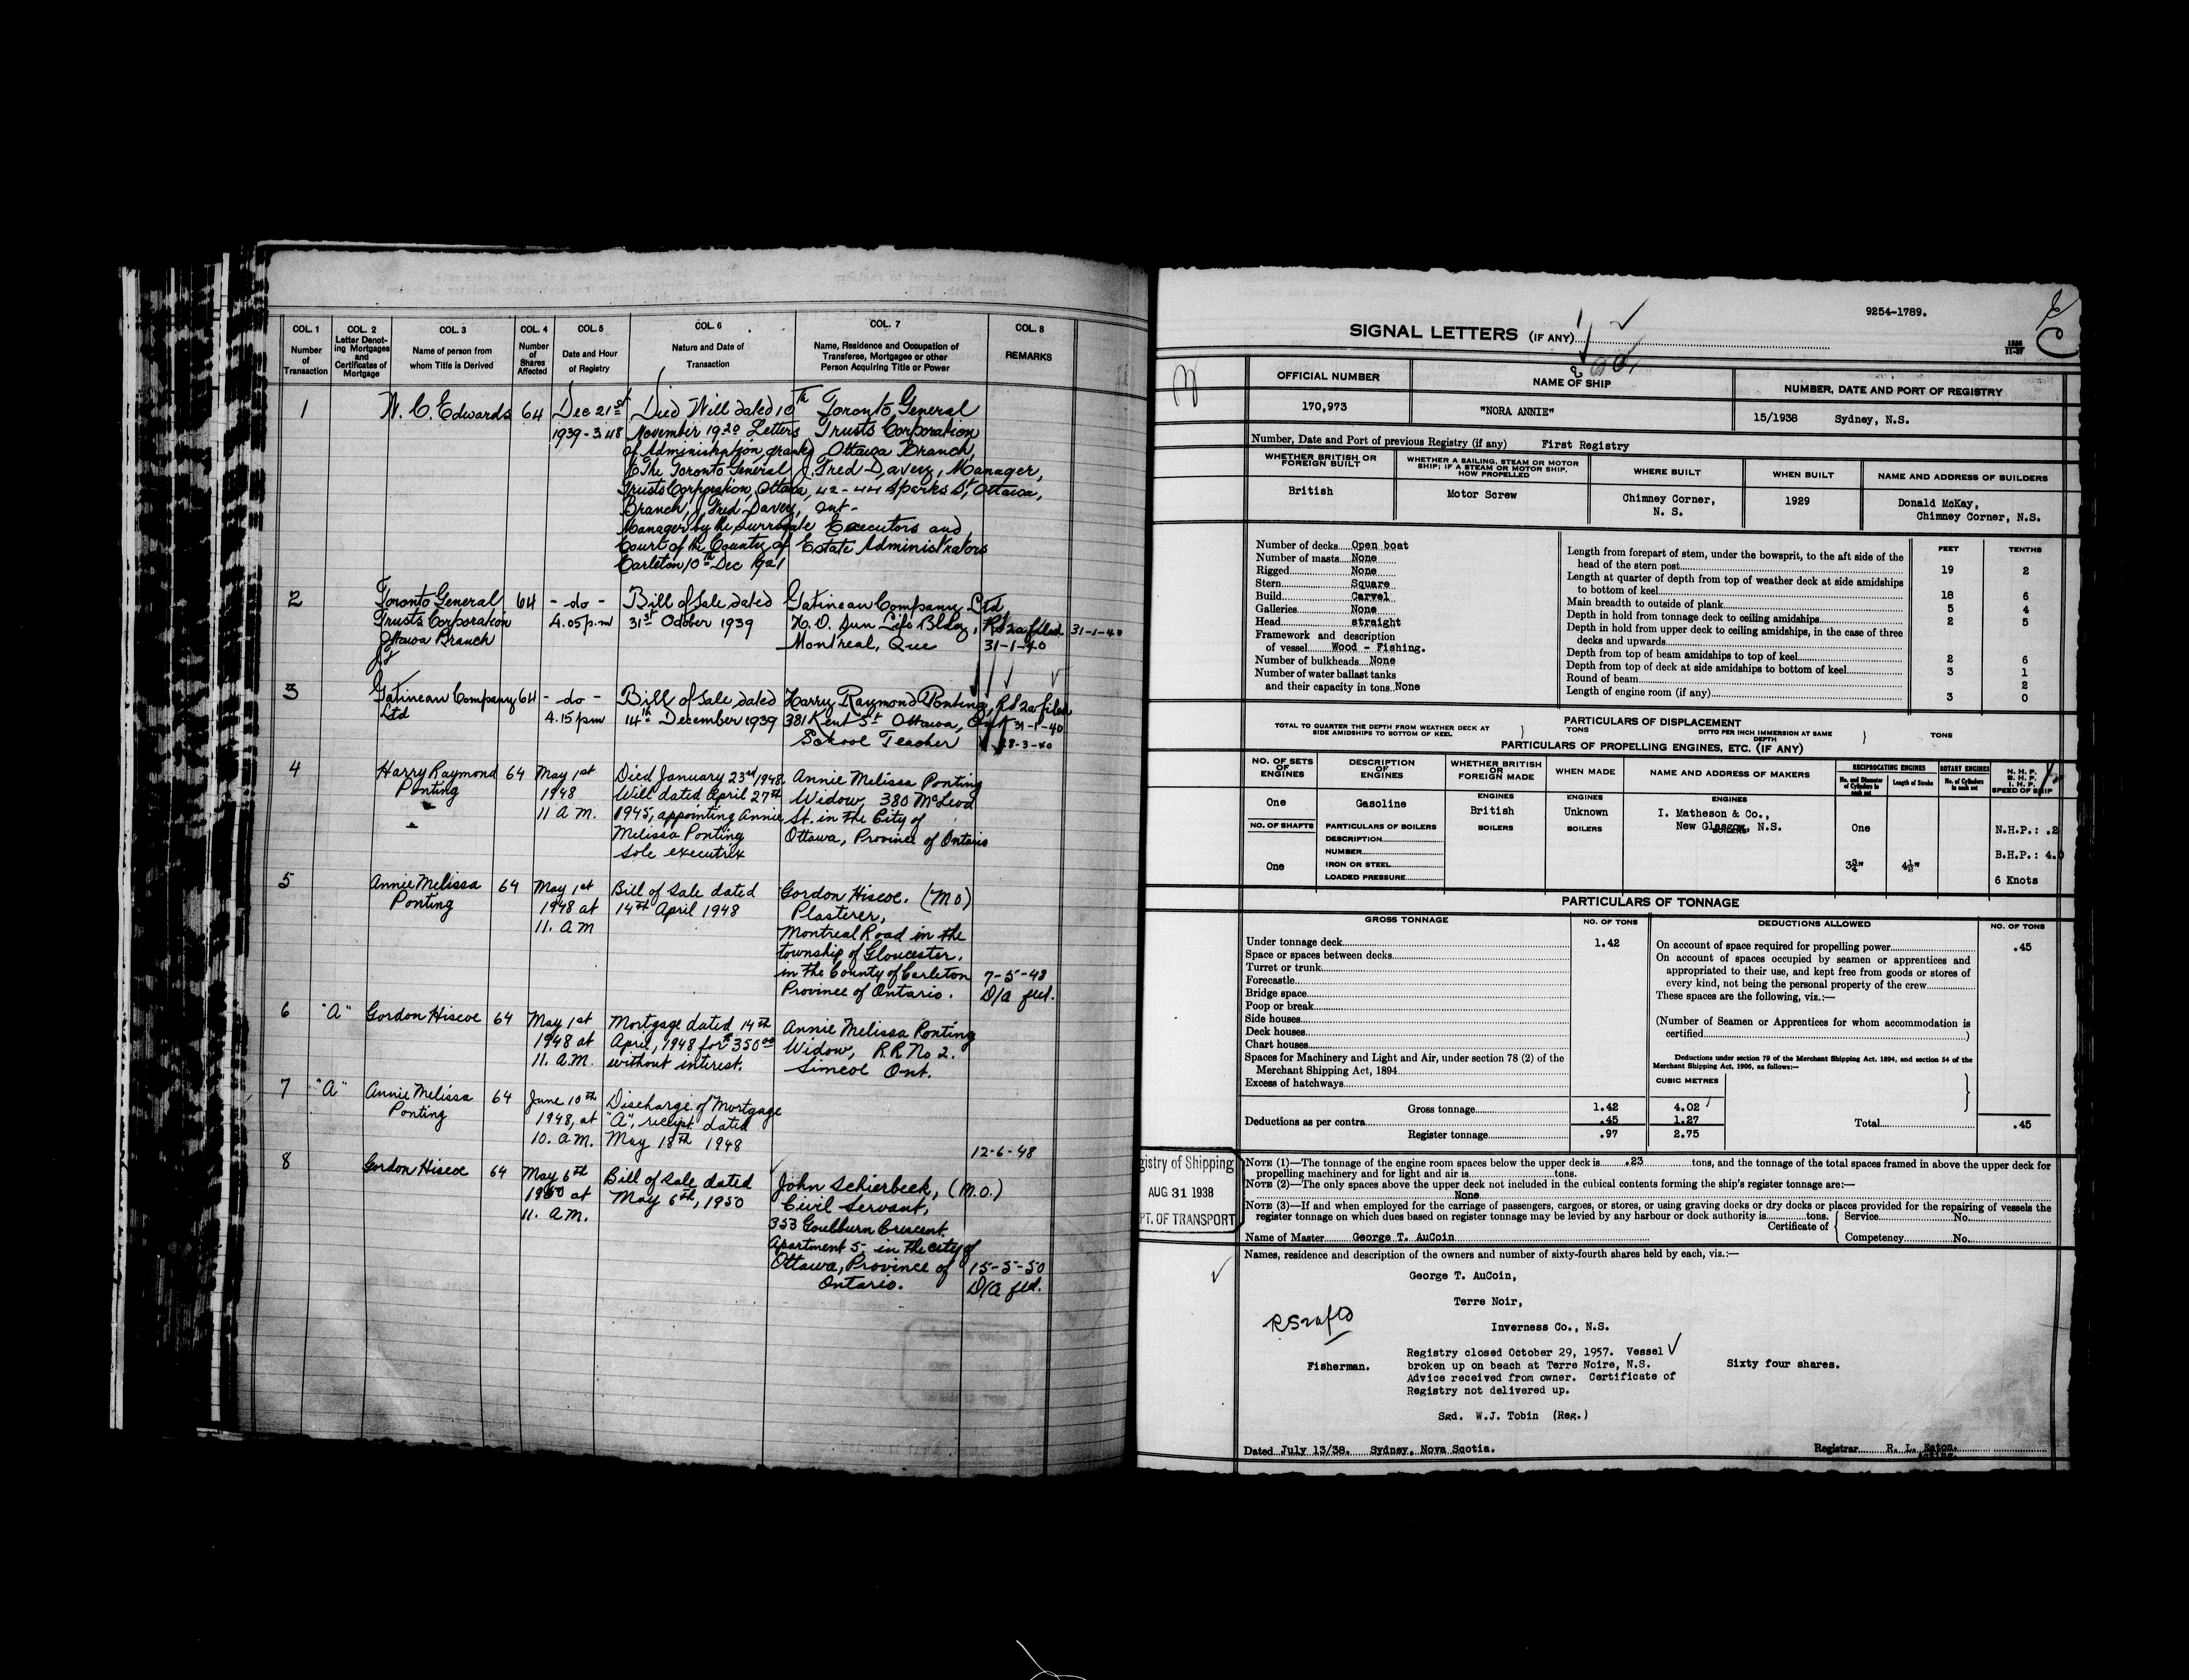 COL. 1 COL. 2 COL. 3 COL. 4 COL. 5 COL. 6 COL. 7 COL. 8
Number of Transaction
Letter Denoting Mortgages and Certificates of Mortgage
Name of person from whom Title is Derived
Number of Shares Affected
Date and Hour of Registry
Nature and Date of Transaction
Name, Residence and Occupation of Transferee, Mortgagee or other Person Acquiring Title or Power
REMARKS
1
W. C. Edwards
64
Dec 21st
1939 - 3.48
Died Will dated 10th
November 1920 Letters
of Administration granted
to The Toronto General
Trusts Corporation, Ottawa
Branch, J. Fred Davey,
Manager by the Surrogate
Court of the County of
Carleton 10th Dec 1921
Toronto General
Trusts Corporation
Ottawa Branch,
J. Fred Davey, Manager,
42-44 Sparks St, Ottawa,
Ont-
Executors and
Estate Administrators
2
Toronto General
Trusts Corporation
Ottawa Branch
64
- do -
4.05 p.m
Bill of Sale dated
31st October 1939
Gatineau Company Ltd
H.O. Sun Life Bldg,
Montreal, Que
RS2a filed 31-1-40
31-1-40
3
Gatineau Company
Ltd
64
- do -
4.15 pm
Bill of Sale dated
14th December 1939
Harry Raymond Ponting,
381 Kent St Ottawa, Ont
School Teacher
RS2a filed
31-1-40
28-3-40
4
Harry Raymond
Ponting
64
May 1st
1948
11 A M.
Died January 23rd 1948
Will dated April 27th
1945, appointing Annie
Melissa Ponting
sole executrix
Annie Melissa Ponting
Widow, 380 McLeod
St. in the City of
Ottawa, Province of Ontario
5
Annie Melissa
Ponting
64
May 1st
1948 at
11. A M
Bill of Sale dated
14th April 1948
Gordon Hiscoe. (M O)
Plasterer,
Montreal Road in the
township of Gloucester.
in the County of Carleton
Province of Ontario.
7-5-48
D/a fld.
6
"A"
Gordon Hiscoe
64
May 1st
1948 at
11. A.M.
Mortgage dated 14th
April, 1948 for $350.00
without interest.
Annie Melissa Ponting
Widow, R.R No 2.
Simcoe Ont.
7
"A"
Annie Melissa
Ponting
64
June 10th
1948, at
10. A.M.
Discharge of Mortgage
"A", receipt dated
May 18th 1948
12-6-48
8
Gordon Hiscoe
64
May 6th
1950 at
11. A.M.
Bill of Sale dated
May 6th, 1950
John Schierbeek, (M.O.)
Civil Servant,
353 Goulburn Crescent.
Apartment 5 in the city of
Ottawa, Province of
Ontario.
15-5-50
D/a fld.
9254-1789.
SIGNAL LETTERS (IF ANY)
OFFICIAL NUMBER
NAME OF SHIP
NUMBER, DATE AND PORT OF REGISTRY
170,973
"NORA ANNIE"
15/1938 Sydney, N.S.
Number, Date and Port of previous Registry (if any) First Registry
WHETHER BRITISH OR FOREIGN BUILT
WHETHER A SAILING, STEAM OR MOTOR SHIP; IF A STEAM OR MOTOR SHIP, HOW PROPELLED
WHERE BUILT
WHEN BUILT
NAME AND ADDRESS OF BUILDERS
British
Motor Screw
Chimney Corner,
N. S.
1929
Donald McKay,
Chimney Corner, N.S.
Number of decks Open boat
Number of masts None
Rigged None
Stern Square
Build Carvel
Galleries None
Head straight
Framework and description
of vessel Wood - Fishing.
Number of bulkheads None
Number of water ballast tanks
and their capacity in tons None
FEET TENTHS
Length from forepart of stem, under the bowsprit, to the aft side of the
head of the stern post 19 2
Length at quarter of depth from top of weather deck at side amidships
to bottom of keel 18 6
Main breadth to outside of plank 5 4
Depth in hold from tonnage deck to ceiling amidships 2 5
Depth in hold from upper deck to ceiling amidships, in the case of three
decks and upwards
Depth from top of beam amidships to top of keel 2 6
Depth from top of deck at side amidships to bottom of keel 3 1
Round of beam 2
Length of engine room (if any) 3 0
PARTICULARS OF DISPLACEMENT
TOTAL TO QUARTER THE DEPTH FROM WEATHER DECK AT SIDE AMIDSHIPS TO BOTTOM OF KEEL } TONS
DITTO PER INCH IMMERSION AT SAME DEPTH } TONS
PARTICULARS OF PROPELLING ENGINES, ETC. (IF ANY)
NO. OF SETS OF ENGINES
DESCRIPTION OF ENGINES
WHETHER BRITISH OR FOREIGN MADE
WHEN MADE
NAME AND ADDRESS OF MAKERS
RECIPROCATING ENGINES
No. and Diameter of Cylinders in each set
Length of Stroke
ROTARY ENGINES
No. of Cylinders in each set
N. H. P.
B. H. P.
I. H. P.
SPEED OF SHIP
ENGINES ENGINES ENGINES
One
Gasoline
British
Unknown
I. Matheson & Co.,
New Glasgow, N.S.
One
N.H.P.: .2
NO. OF SHAFTS
PARTICULARS OF BOILERS
BOILERS BOILERS BOILERS
DESCRIPTION
NUMBER
IRON OR STEEL
LOADED PRESSURE
One
3¾"
4½"
B.H.P.: 4.0
6 Knots
PARTICULARS OF TONNAGE
GROSS TONNAGE
NO. OF TONS
DEDUCTIONS ALLOWED
NO. OF TONS
Under tonnage deck 1.42
Space or spaces between decks
Turret or trunk
Forecastle
Bridge space
Poop or break
Side houses
Deck houses
Chart houses
Spaces for Machinery and Light and Air, under section 78 (2) of the
Merchant Shipping Act, 1894
Excess of hatchways
On account of space required for propelling power .45
On account of spaces occupied by seamen or apprentices and
appropriated to their use, and kept free from goods or stores of
every kind, not being the personal property of the crew
These spaces are the following, viz.:—
(Number of Seamen or Apprentices for whom accommodation is
certified )
Deductions under section 79 of the Merchant Shipping Act, 1894, and section 54 of the
Merchant Shipping Act, 1906, as follows:—
CUBIC METRES
Gross tonnage 1.42 4.02
Deductions as per contra .45 1.27
Register tonnage .97 2.75
Total .45
gistry of Shipping
AUG 31 1938
PT. OF TRANSPORT
NOTE (1)—The tonnage of the engine room spaces below the upper deck is .23 tons, and the tonnage of the total spaces framed in above the upper deck for
propelling machinery and for light and air is tons.
NOTE (2)—The only spaces above the upper deck not included in the cubical contents forming the ship's register tonnage are:—
None
NOTE (3)—If and when employed for the carriage of passengers, cargoes, or stores, or using graving docks or dry docks or places provided for the repairing of vessels the
register tonnage on which dues based on register tonnage may be levied by any harbour or dock authority is tons.
Certificate of { Service No.
Competency No.
Name of Master George T. AuCoin
Names, residence and description of the owners and number of sixty-fourth shares held by each, viz.:—
George T. AuCoin,
Terre Noir,
Inverness Co., N.S.
RS2afld
Fisherman.
Sixty four shares.
Registry closed October 29, 1957. Vessel
broken up on beach at Terre Noire, N.S.
Advice received from owner. Certificate of
Registry not delivered up.
Sgd. W.J. Tobin (Reg.)
Dated July 13/38. Sydney, Nova Scotia.
Registrar R. L. Eaton.
Acting.